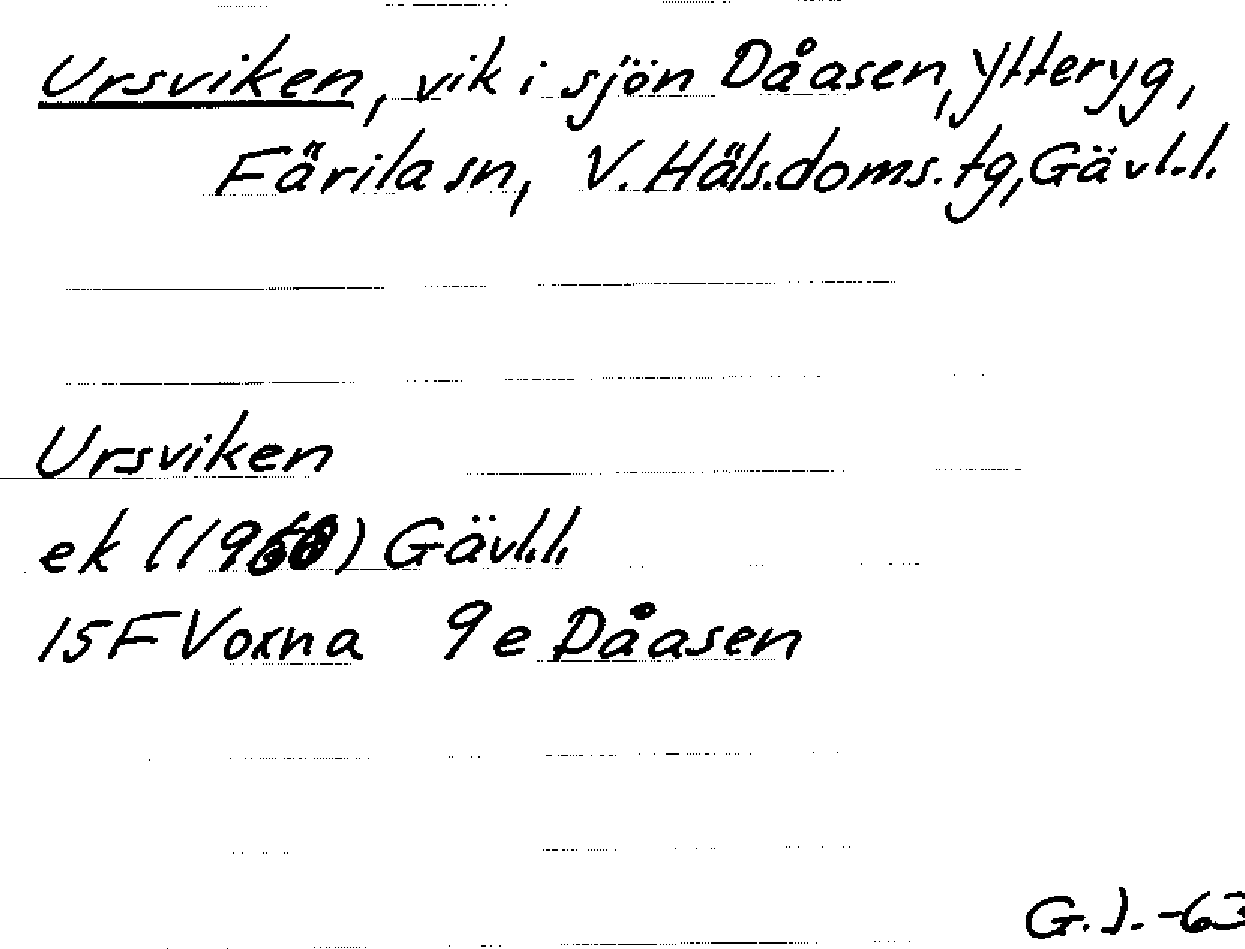 Ursviken, vik i sjön Dåasen, Ytteryg,
Färila sn, V. Häls. doms. tg, Gävl.l.
Ursviken
ek (1960) Gävl.l.
15F Voxna 9e Dåasen
G.J. -63